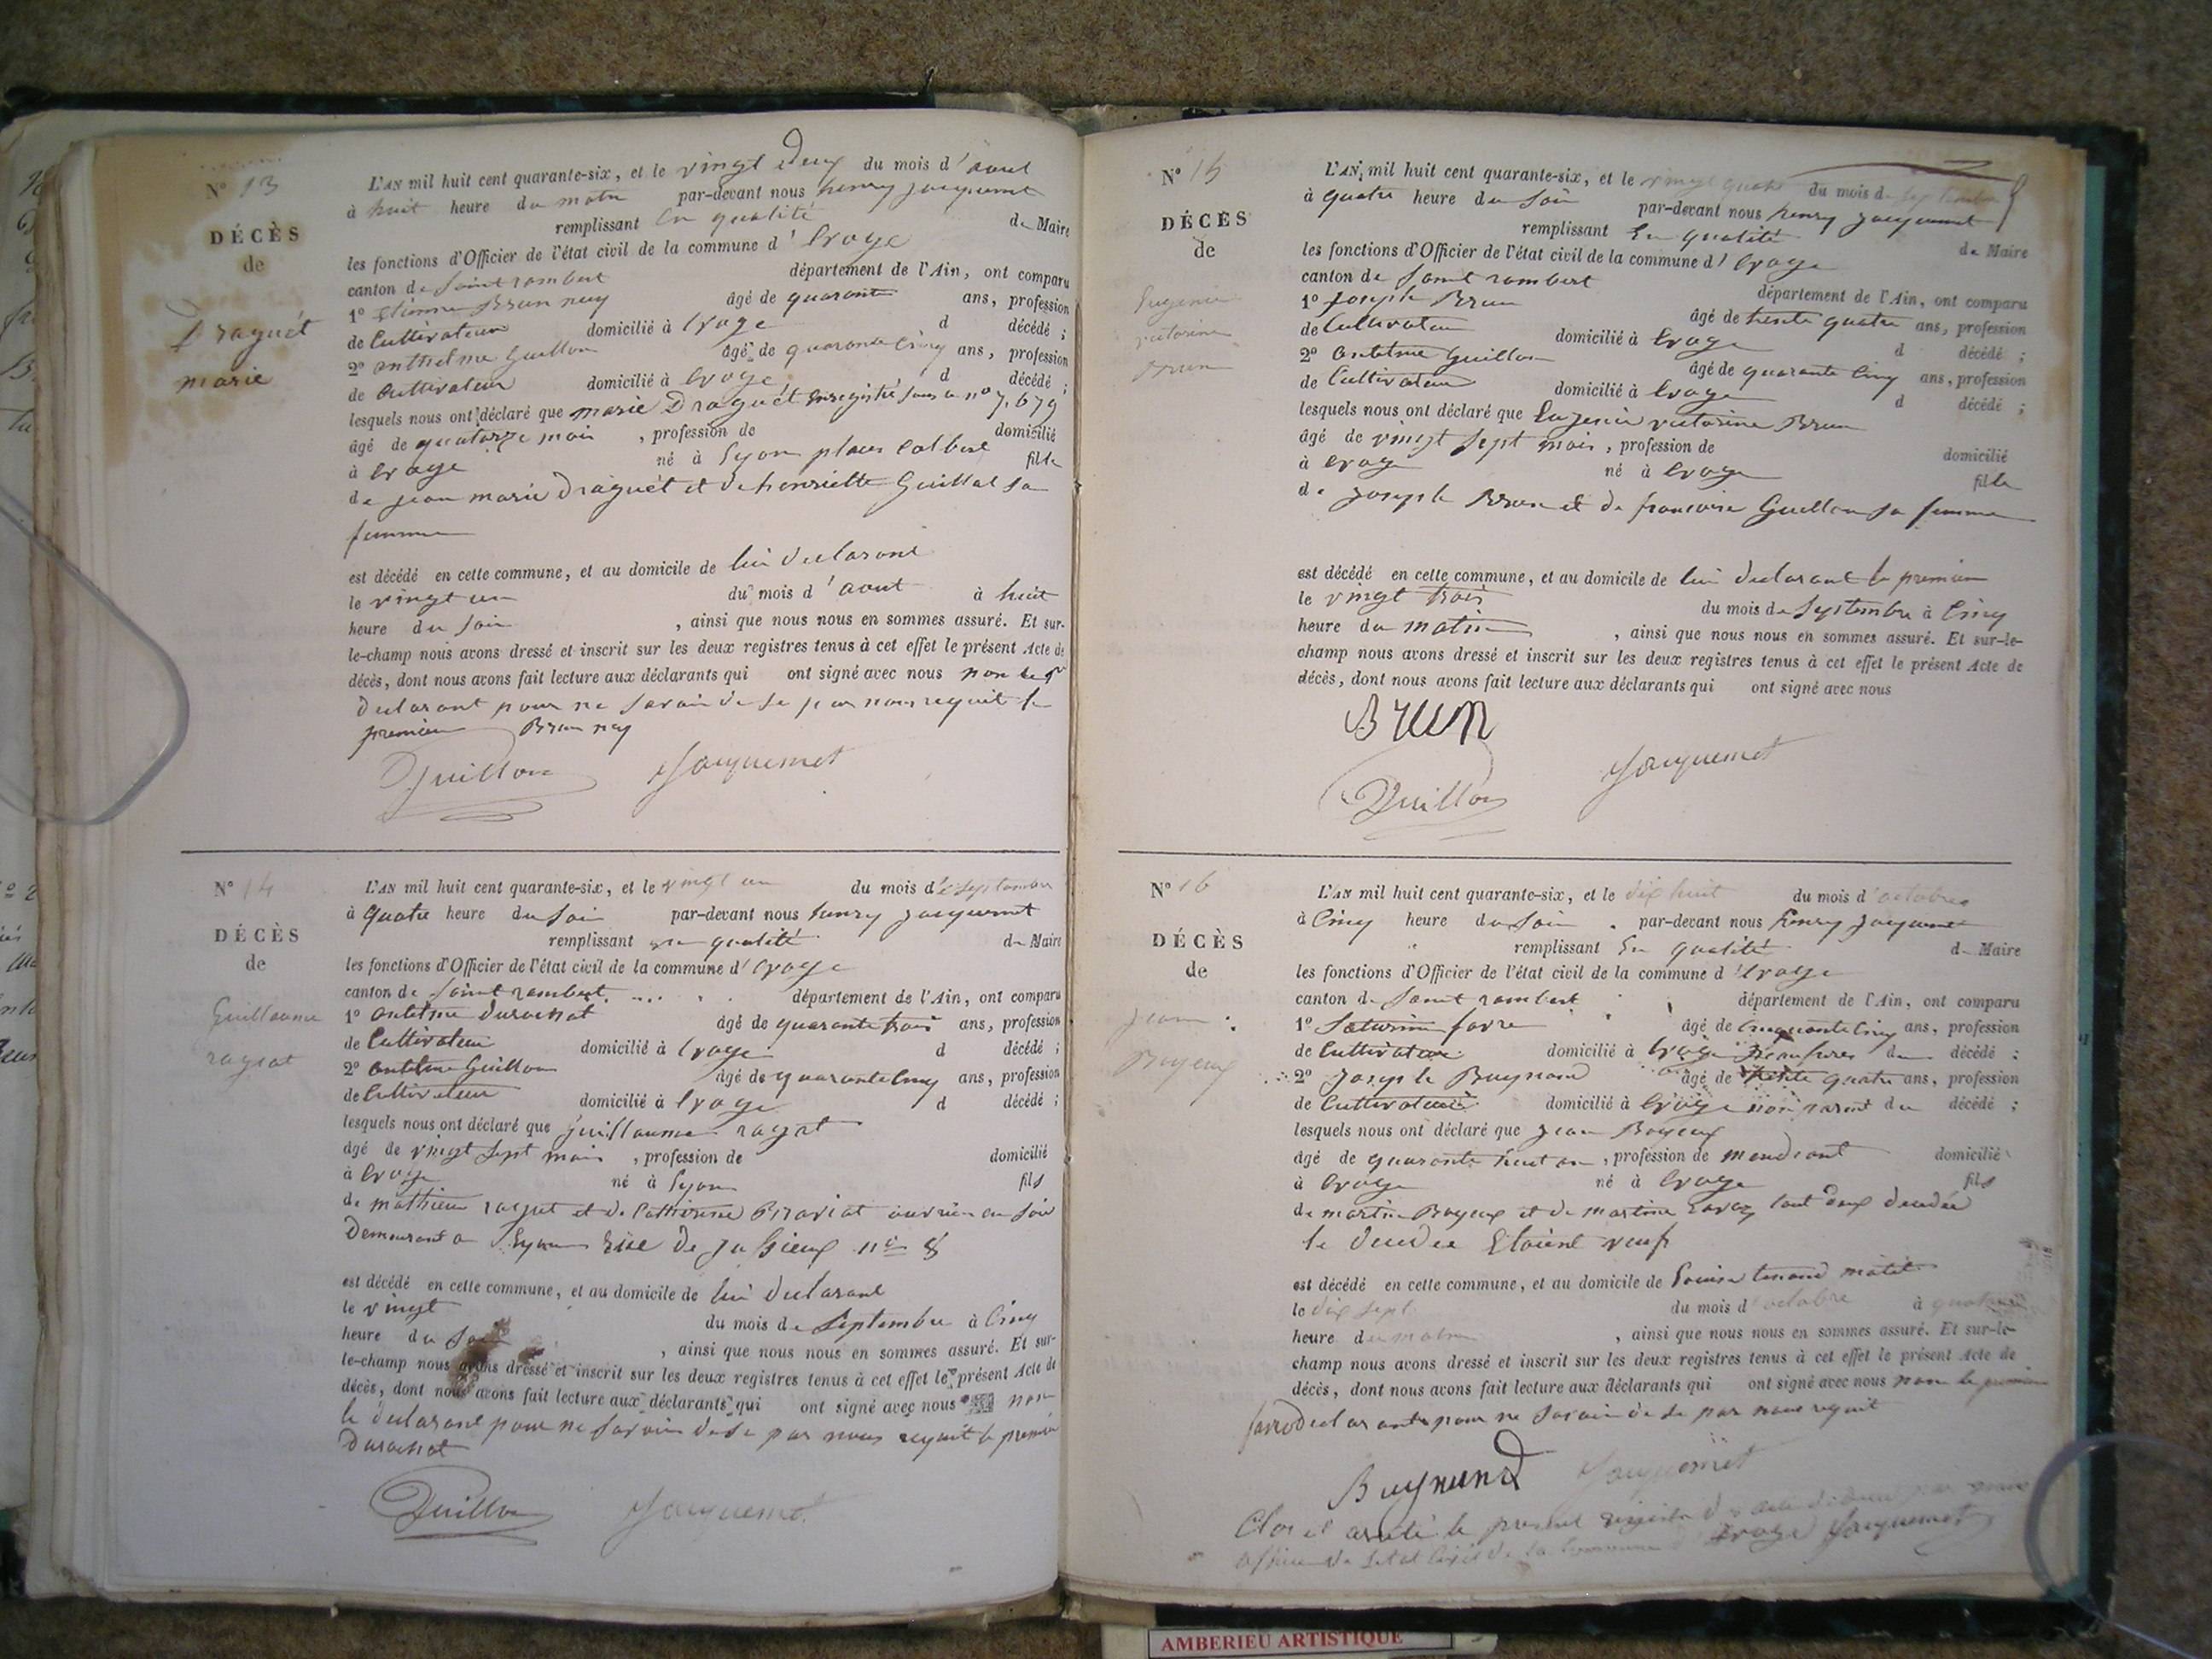 N° 13
DÉCÈS
de
Draguet
marie
L'AN mil huit cent quarante-six, et le vingt deux du mois d'aout
à huit heure du matin par-devant nous henry jacquemet
remplissant en qualité de Maire
les fonctions d'Officier de l'état civil de la commune d' Evoge
canton de Saint rambert département de l'Ain, ont comparu
1° etienne Brun ney âgé de quarante ans, profession
de Cultivateur domicilié à Evoge d décédé ;
2° anthelme Guillon âgé de quarante cinq ans, profession
de Cultivateur domicilié à Evoge d décédé ;
lesquels nous ont déclaré que marie Draguet enregistré sous n° 7,679
âgé de quatorze mois , profession de domicilié
à Evoge né à Lyon place Colbert fille
de jean marie Draguet et de henriette Guillat sa
femme
est décédé en cette commune, et au domicile de lui declarant
le vingt un du mois d'aout à huit
heure du soir , ainsi que nous nous en sommes assuré. Et sur-
le-champ nous avons dressé et inscrit sur les deux registres tenus à cet effet le présent Acte de
décès, dont nous avons fait lecture aux déclarants qui ont signé avec nous non le
declarant pour ne savoir de se par nous requit le
premier Brun ney
Guillon Jacquemet
N° 14
DÉCÈS
de
Guillaume
ragiat
L'AN mil huit cent quarante-six, et le vingt un du mois de septembre
à Quatre heure du soir par-devant nous henry jacquemet
remplissant en qualité de Maire
les fonctions d'Officier de l'état civil de la commune d' Evoge
canton de Saint rambert département de l'Ain, ont comparu
1° antelme durochat âgé de quarante trois ans, profession
de Cultivateur domicilié à Evoge d décédé ;
2° antelme Guillon âgé de quarante cinq ans, profession
de Cultivateur domicilié à Evoge d décédé ;
lesquels nous ont déclaré que guillaume ragiat
âgé de vingt sept mois , profession de domicilié
à Evoge né à Lyon fils
de mathieu et de Catherine ouvrier en soie
Demeurant a Lyon Rue de Jussieux n° 8
est décédé en cette commune, et au domicile de lui declarant
le vingt du mois de Septembre à Cinq
heure du soir , ainsi que nous nous en sommes assuré. Et sur-
le-champ nous avons dressé et inscrit sur les deux registres tenus à cet effet le présent Acte de
décès, dont nous avons fait lecture aux déclarants qui ont signé avec nous non
le declarant pour ne savoir de se par nous requit le premier
Durochat
Guillon Jacquemet
N° 15
DÉCÈS
de
Eugenie
victorine
Brun
L'AN mil huit cent quarante-six, et le vingt quatre du mois de septembre
à quatre heure du soir par-devant nous henry jacquemet
remplissant En qualité de Maire
les fonctions d'Officier de l'état civil de la commune d' Evoge
canton de Saint rambert département de l'Ain, ont comparu
1° Joseph Brun âgé de trente quatre ans, profession
de Cultivateur domicilié à Evoge d décédé ;
2° antelme Guillon âgé de quarante cinq ans, profession
de Cultivateur domicilié à Evoge d décédé ;
lesquels nous ont déclaré que Eugenie victorine Brun
âgé de vingt sept mois , profession de domicilié
à Evoge né à Evoge fille
de Joseph Brun et de francoise Guillon sa femme
est décédé en cette commune, et au domicile de lui declarant le premier
le vingt trois du mois de Septembre à Cinq
heure du matin , ainsi que nous nous en sommes assuré. Et sur-le-
champ nous avons dressé et inscrit sur les deux registres tenus à cet effet le présent Acte de
décès, dont nous avons fait lecture aux déclarants qui ont signé avec nous
Brun
Jacquemet
Guillon
N° 16
DÉCÈS
de
Jean
Boyeux
L'AN mil huit cent quarante-six, et le dix huit du mois d'octobre
à Cinq heure du soir par-devant nous henry jacquemet
remplissant En qualité de Maire
les fonctions d'Officier de l'état civil de la commune d' Evoge
canton de Saint rambert département de l'Ain, ont comparu
1° Saturnin favre âgé de cinquante cinq ans, profession
de Cultivateur domicilié à Evoge du décédé ;
2° Joseph Buynand âgé de trente quatre ans, profession
de Cultivateur domicilié à Evoge non parent du décédé ;
lesquels nous ont déclaré que Jean Boyeux
âgé de quarante huit an , profession de mendiant domicilié
à Evoge né à Evoge fils
de martin Boyeux et de martine tout deux decedée
le decedee Etoient veuf
est décédé en cette commune, et au domicile de
le dix sept du mois d'octobre à
heure du matin , ainsi que nous nous en sommes assuré. Et sur-le-
champ nous avons dressé et inscrit sur les deux registres tenus à cet effet le présent Acte de
décès, dont nous avons fait lecture aux déclarants qui ont signé avec nous non le premier
declarants pour ne savoir de se par nous requit
Buynand Jacquemet
Clos et arreté le present registre
officier de l'etat Civil de la Commune d'Evoge Jacquemet
AMBERIEU ARTISTIQUE